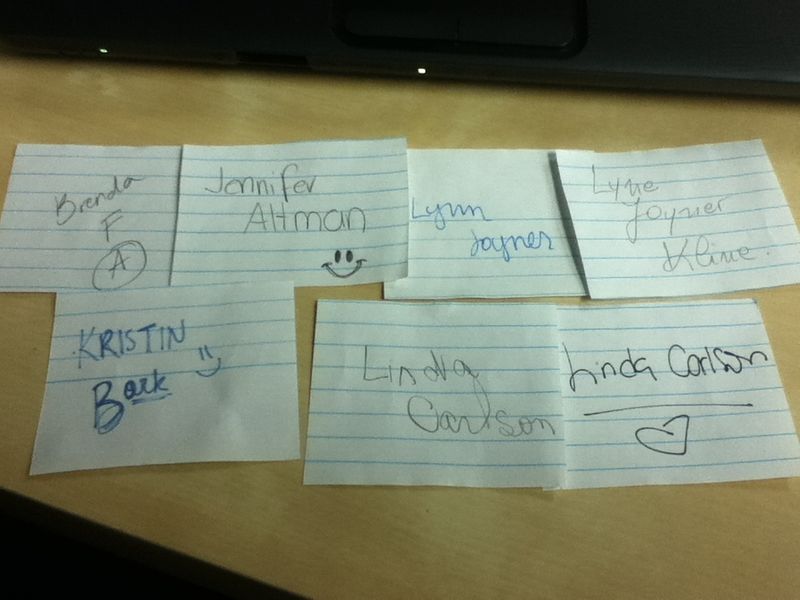 Brenda
F
A
Jennifer
Altman
Lynn
Joyner
Lyne
Joyner
Kline.
KRISTIN
Bark
Linda
Carlson
Linda Carlson